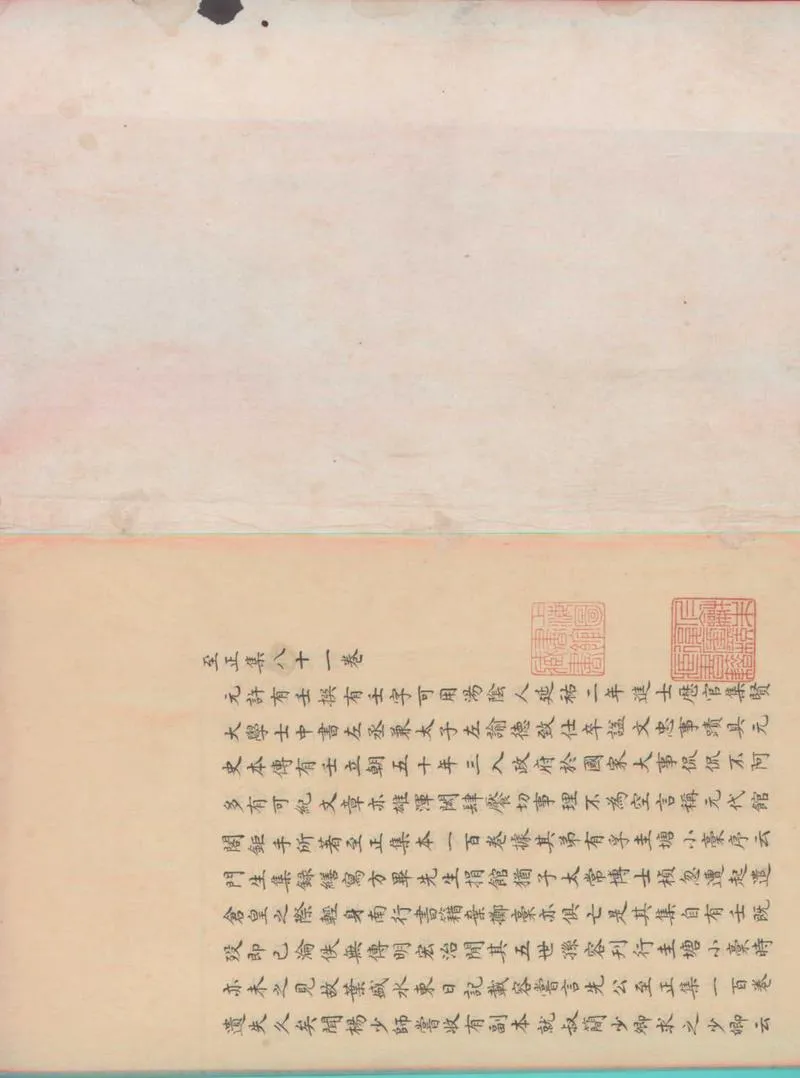 至正集八十一卷
元許有壬撰有壬字可用湯陰人延祐二年進士歴官集賢
大學士中書左丞兼太子左諭德致仕卒諡文忠事蹟具元
史本傳有壬立朝五十年三入政府於國家大事侃侃不阿
多有可紀文章亦雄渾閎肆饜切事理不為空言稱元代館
閣鉅手所著至正集本一百卷據其弟有孚圭塘小藁序云
門生集録繕寫方畢先生捐館猶子太常博士楨忽遭起遣
倉皇之際輕身南行書籍棄擲藁亦俱亡是其集自有壬既
歿即已淪佚無傳明宏治間其五世孫容刊行圭塘小藁時
亦未之見故葉盛水東日記載容嘗言先公至正集一百卷
遺失久矣聞楊少師嘗收有副本就叔簡少卿求之少卿云